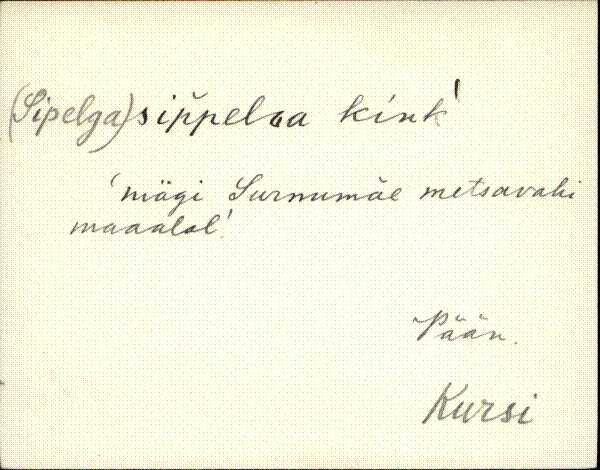 (Sipelga) sippelGa kink'
'mägi Surnumäe metsavahi
maaalal'.
Pään.
Kursi